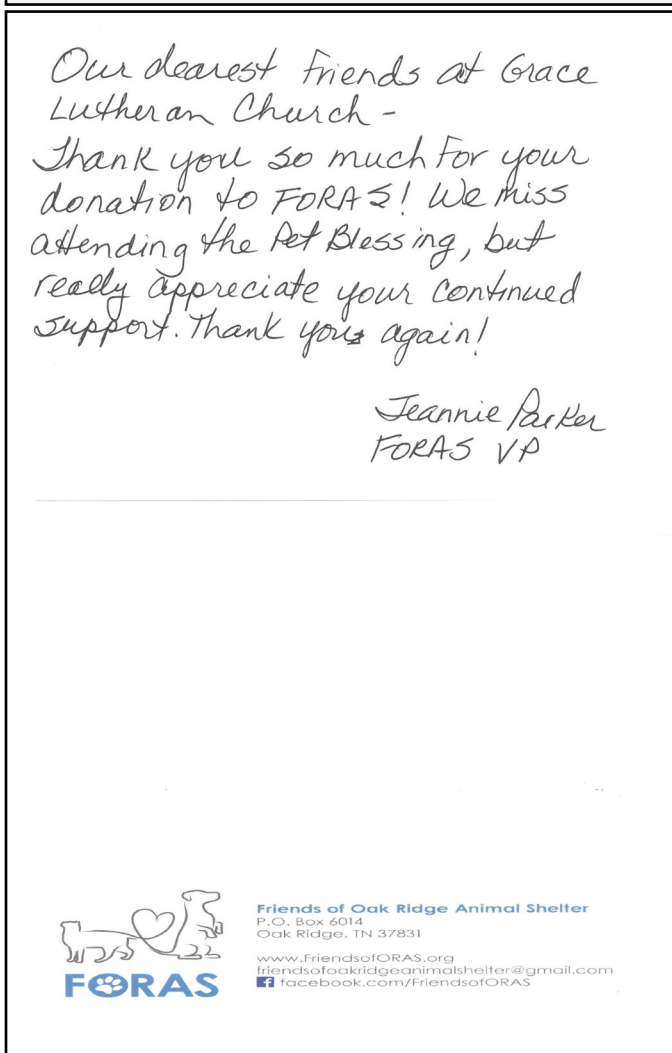 Our dearest friends at Grace
Lutheran Church -
Thank you so much for your
donation to FORAS! We miss
attending the Pet Blessing, but
really appreciate your continued
support. Thank you again!
Jeannie Parker
FORAS VP
FORAS
Friends of Oak Ridge Animal Shelter
P.O. Box 6014
Oak Ridge, TN 37831
www.FriendsofORAS.org
friendsofoakridgeanimalshelter@gmail.com
facebook.com/FriendsofORAS